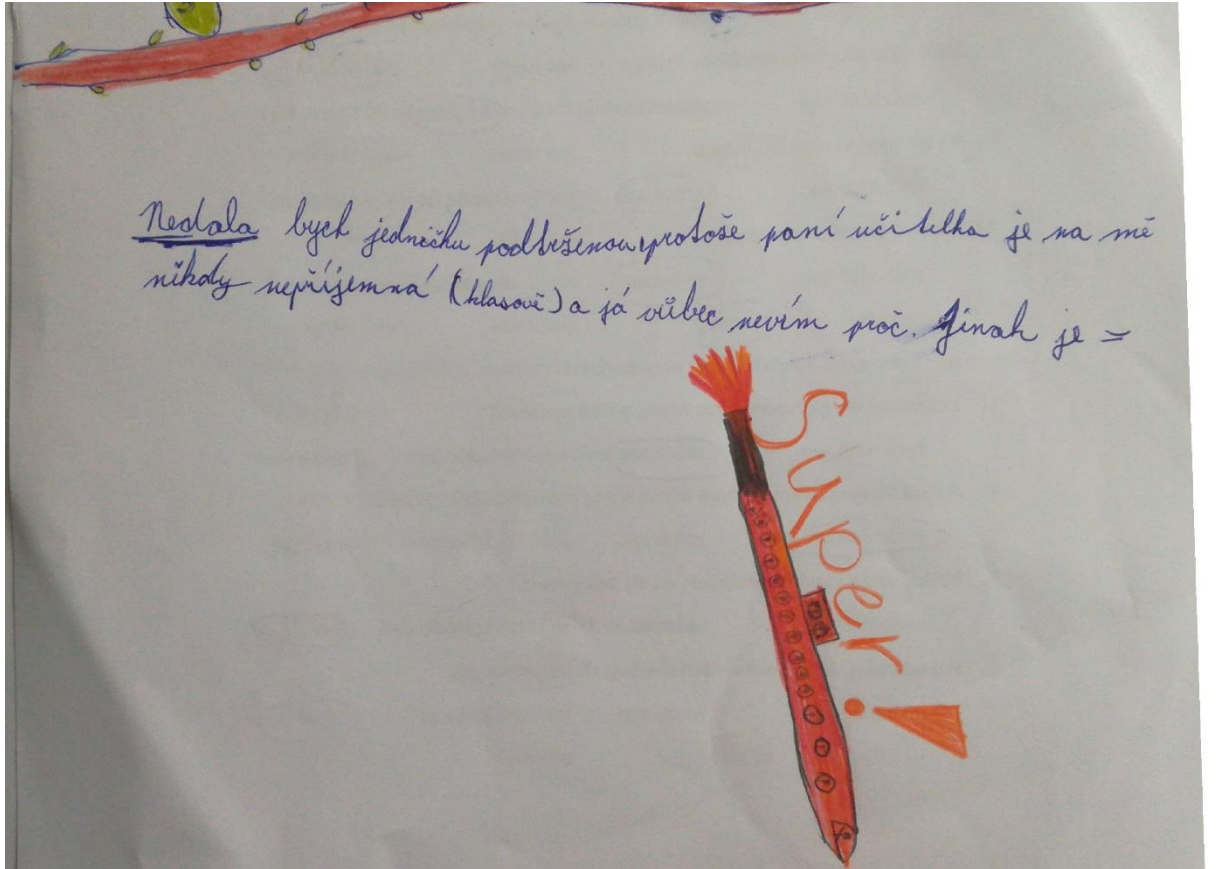 Nedala bych jedničku podtrženou protože paní učitelka je na mě
někdy nepříjemná (hlasově) a já vůbec nevím proč. Jinak je =
Super!